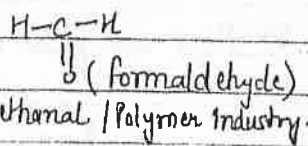 H-C-H
||
O (formaldehyde)
ethanal / Polymer Industry.